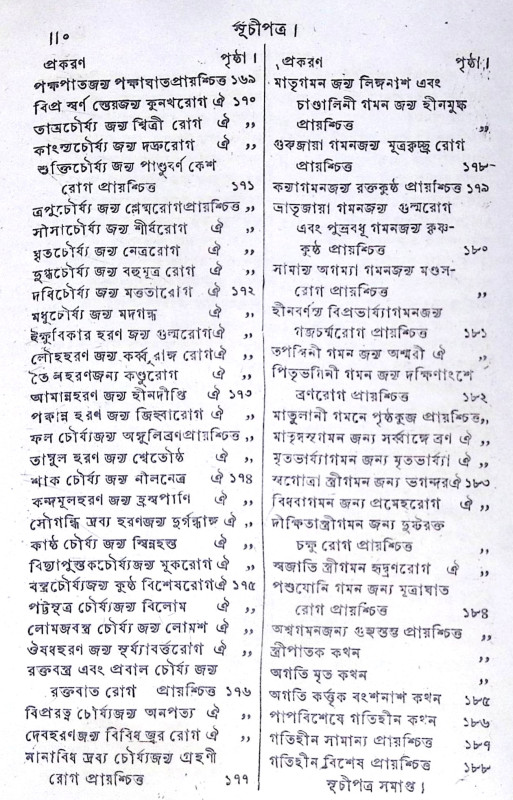 ॥০ সূচীপত্র।
প্রকরণ পৃষ্ঠা।
পক্ষপাতজন্য পক্ষাঘাতপ্রায়শ্চিত্ত ১৬৯
বিপ্র স্বর্ণ স্তেয়জন্য কুনখরোগ ঐ ১৭০
তাম্রচৌর্য্য জন্য শ্বিত্রী রোগ ঐ ,,
কাংস্যচৌর্য্য জন্য দদ্রুরোগ ঐ ,,
শুক্তিচৌর্য্য জন্য পাণ্ডুবর্ণ কেশ
রোগ প্রায়শ্চিত্ত ১৭১
ত্রপুচৌর্য্য জন্য শ্লেষ্মরোগপ্রায়শ্চিত্ত ,,
সীসাচৌর্য্য জন্য শীর্ষরোগ ঐ ,,
ঘৃতচৌর্য্য জন্য নেত্ররোগ ঐ ,,
দুগ্ধচৌর্য্য জন্য বহুমূত্র রোগ ঐ ,,
দধিচৌর্য্য জন্য মত্ততারোগ ঐ ১৭২
মধুচৌর্য্য জন্য মদগন্ধ ঐ ,,
ইক্ষুবিকার হরণ জন্য গুল্মরোগঐ ,,
লৌহহরণ জন্য কর্ব্বুরাঙ্গ রোগঐ ,,
তৈলহরণজন্য কণ্ডুরোগ ঐ ,,
আমান্নহরণ জন্য হীনদীপ্তি ঐ ১৭৩
পক্বান্ন হরণ জন্য জিহ্বারোগ ঐ ,,
ফল চৌর্য্যজন্য অঙ্গুলিব্রণপ্রায়শ্চিত্ত ,,
তাম্বুল হরণ জন্য শ্বেতৌষ্ঠ ঐ ,,
শাক চৌর্য্য জন্য নীলনেত্র ঐ ১৭৪
কন্দমূলহরণ জন্য হ্রস্বপাণি ঐ ,,
সৌগন্ধি দ্রব্য হরণজন্য দুর্গন্ধাঙ্গ ঐ ,,
কাষ্ঠ চৌর্য্য জন্য স্বিন্নহস্ত ঐ ,,
বিদ্যাপুস্তকচৌর্য্য জন্য মূকরোগ ঐ ,,
বস্ত্রচৌর্য্যজন্য কুষ্ঠ বিশেষরোগঐ ১৭৫
পট্টসূত্র চৌর্য্য জন্য বিলোম ঐ ,,
লোমজবস্ত্র চৌর্য্য জন্য লোমশ ঐ ,,
ঔষধহরণ জন্য সূর্য্যাবর্ত্তরোগ ঐ ,,
রক্তবস্ত্র এবং প্রবাল চৌর্য্য জন্য
রক্তবাত রোগ প্রায়শ্চিত্ত ১৭৬
বিপ্ররত্ন চৌর্য্যজন্য অনপত্য ঐ ,,
দেবহরণজন্য বিবিধ জ্বর রোগ ঐ ,,
নানাবিধ দ্রব্য চৌর্য্যজন্য গ্রহণী
রোগ প্রায়শ্চিত্ত ১৭৭
প্রকরণ পৃষ্ঠা।
মাতৃগমন জন্য লিঙ্গনাশ এবং
চাণ্ডালিনী গমন জন্য হীনমুষ্ক
প্রায়শ্চিত্ত ,,
গুরুজায়া গমনজন্য মূত্রকৃচ্ছ্র রোগ
প্রায়শ্চিত্ত ১৭৮
কন্যাগমনজন্য রক্তকুষ্ঠ প্রায়শ্চিত্ত ১৭৯
ভ্রাতৃজায়া গমনজন্য গুল্মরোগ
এবং পুত্রবধূ গমনজন্য কৃষ্ণ-
কুষ্ঠ প্রায়শ্চিত্ত ১৮০
সামান্য অগম্যা গমনজন্য মণ্ডল-
রোগ প্রায়শ্চিত্ত ,,
হীনবর্ণস্য বিপ্রভার্য্যাগমনজন্য
গজচর্ম্মরোগ প্রায়শ্চিত্ত ১৮১
তপস্বিনী গমন জন্য অশ্মরী ঐ ,,
পিতৃভগিনী গমন জন্য দক্ষিণাংশে
ব্রণরোগ প্রায়শ্চিত্ত ১৮২
মাতুলানী গমনে পৃষ্ঠকুব্জ প্রায়শ্চিত্ত,,
মাতৃষ্বসৃগমন জন্য সর্ব্বাঙ্গে ব্রণ ঐ ,,
মৃতভার্য্যাগমন জন্য মৃতভার্য্যা ঐ ,,
স্বগোত্রা স্ত্রীগমন জন্য ভগন্দরঐ ১৮৩
বিধবাগমন জন্য প্রমেহরোগ ঐ ,,
দীক্ষিতাস্ত্রীগমন জন্য দুষ্টরক্ত
চক্ষু রোগ প্রায়শ্চিত্ত ,,
স্বজাতি স্ত্রীগমন হৃদ্ব্রণরোগ ঐ ,,
পশুযোনি গমন জন্য মূত্রাঘাত
রোগ প্রায়শ্চিত্ত ১৮৪
অশ্বগমনজন্য গুহ্যস্তম্ভ প্রায়শ্চিত্ত ,,
স্ত্রীপাতক কথন ,,
অগতি মৃত কথন ,,
অগতি কর্ত্তৃক বংশনাশ কথন ১৮৫
পাপবিশেষে গতিহীন কথন ১৮৬
গতিহীন সামান্য প্রায়শ্চিত্ত ১৮৭
গতিহীন বিশেষ প্রায়শ্চিত্ত ১৮৮
সূচীপত্র সমাপ্ত।